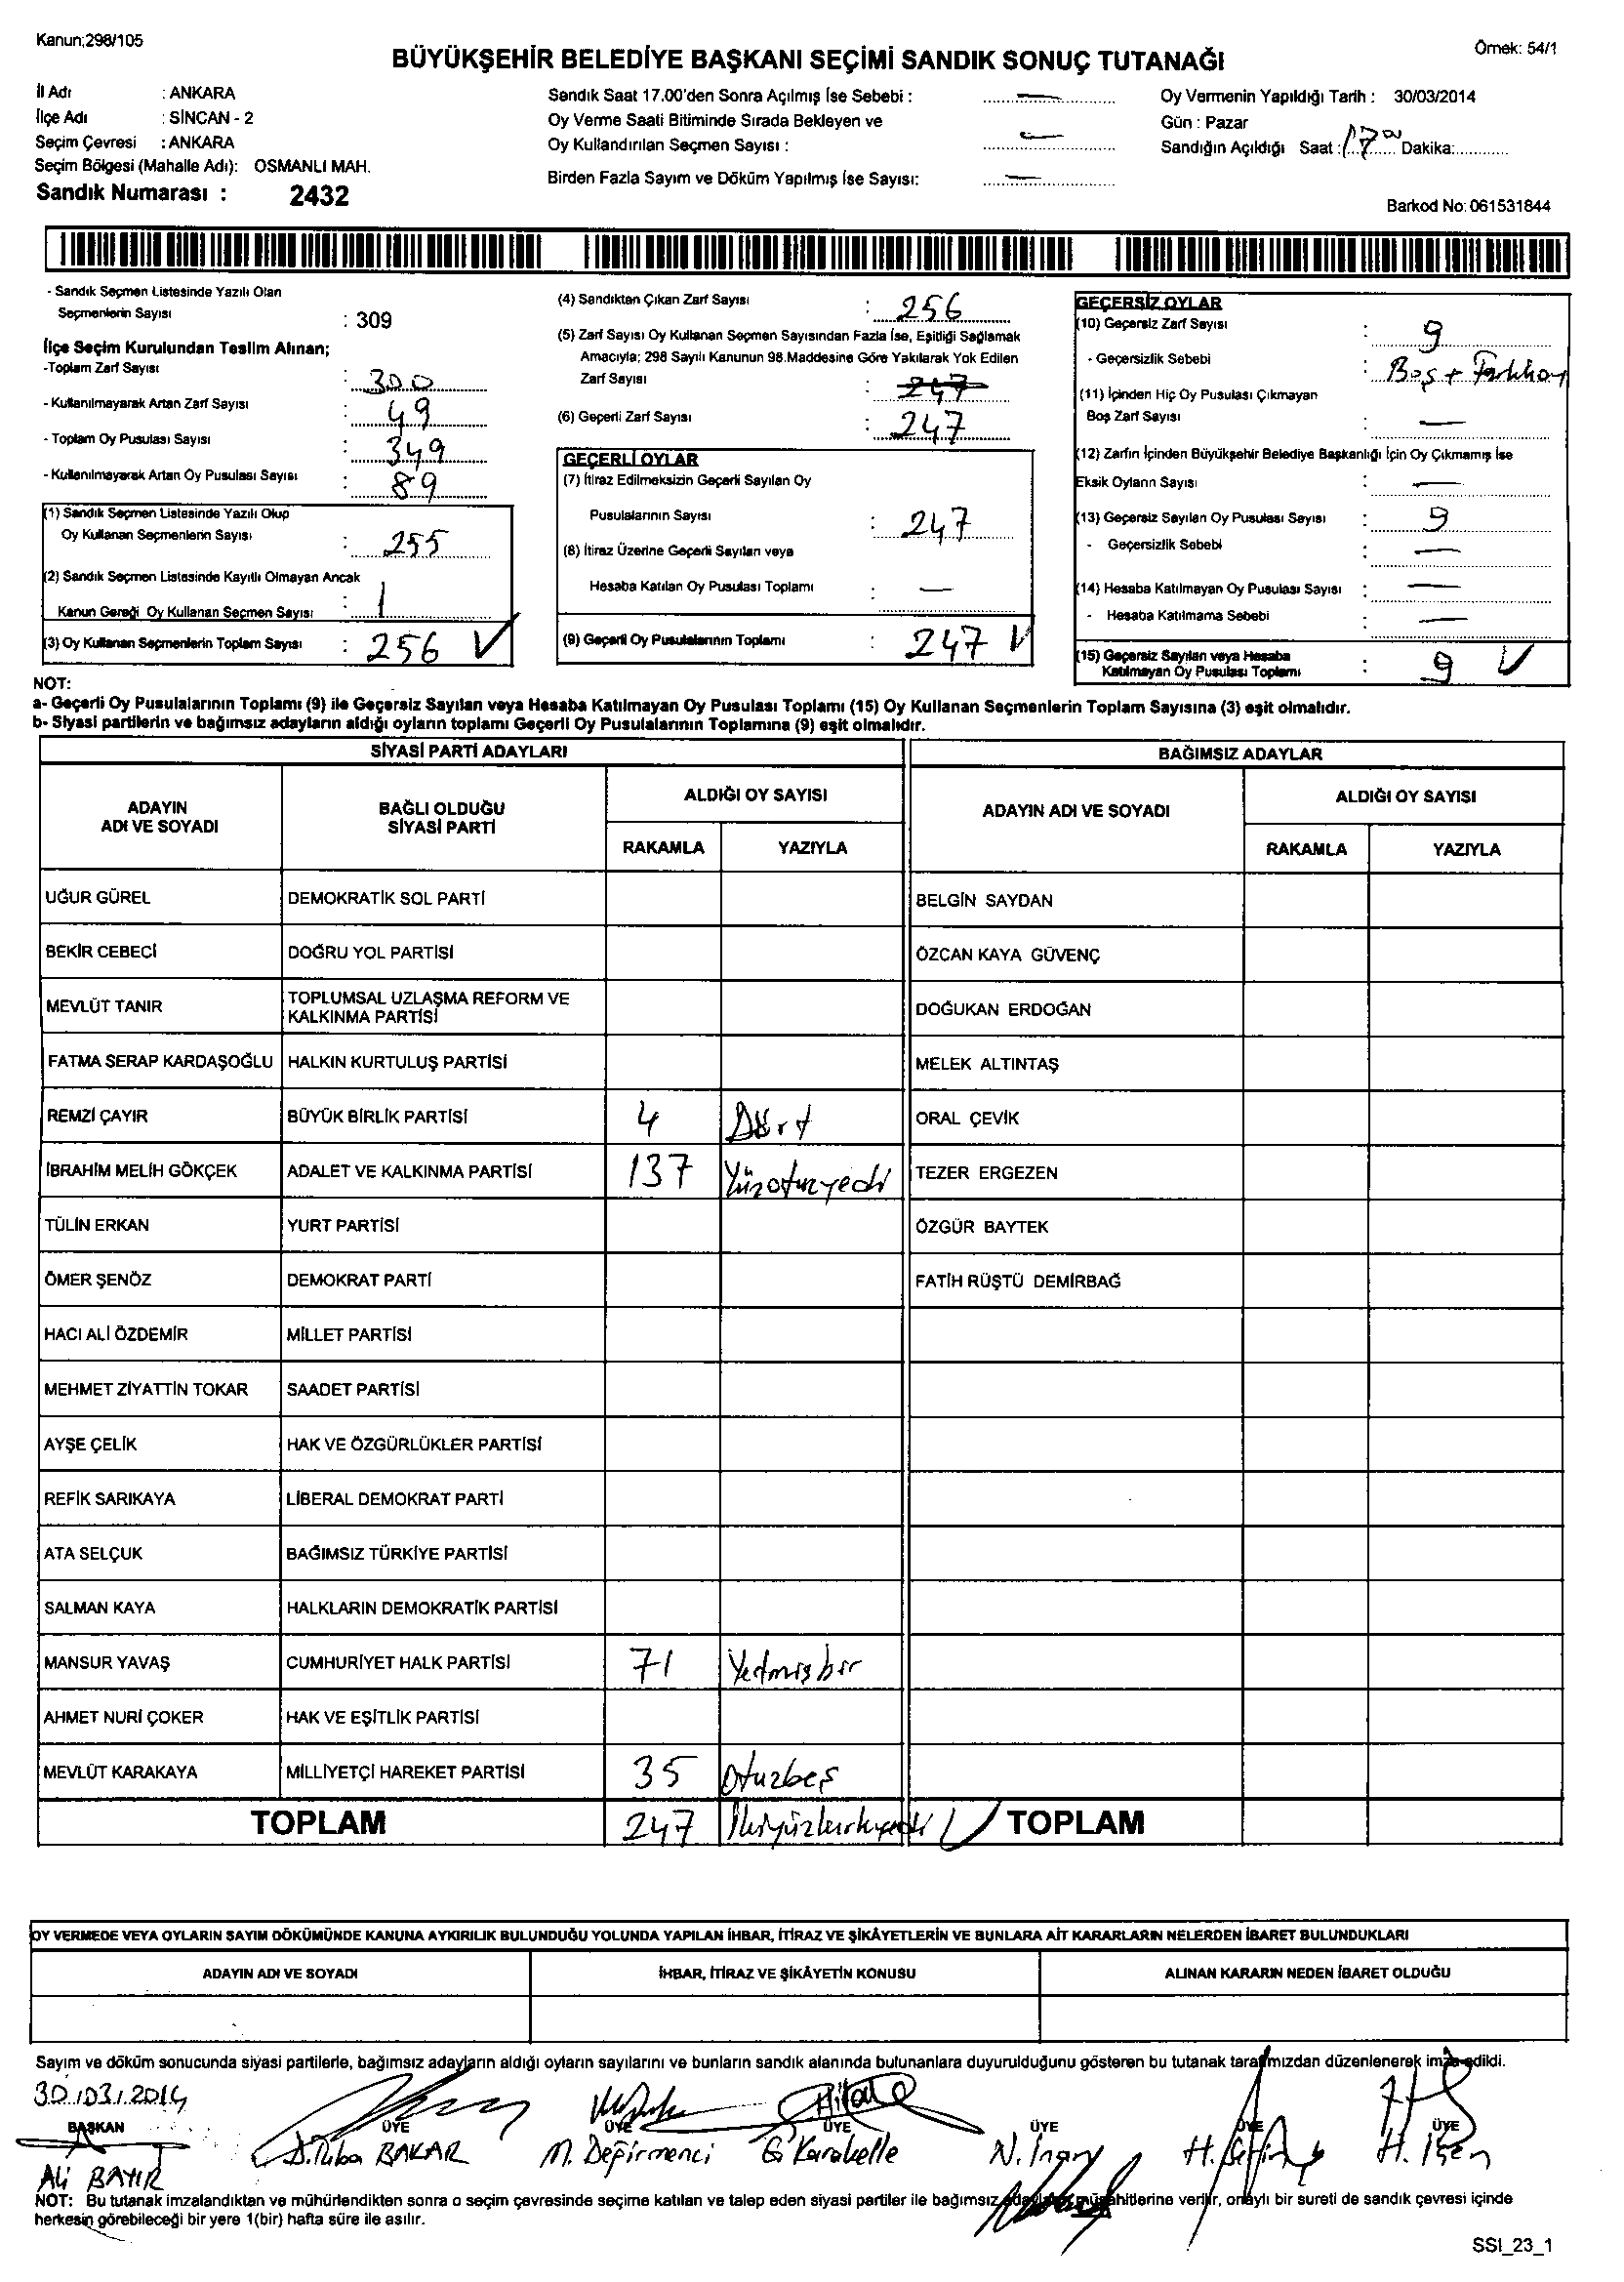 Kanun;298/105
Örnek: 54/1
BÜYÜKŞEHİR BELEDİYE BAŞKANI SEÇİMİ SANDIK SONUÇ TUTANAĞI
İl Adı : ANKARA
İlçe Adı : SİNCAN - 2
Seçim Çevresi : ANKARA
Seçim Bölgesi (Mahalle Adı): OSMANLI MAH.
Sandık Numarası : 2432
Sandık Saat 17.00'den Sonra Açılmış İse Sebebi : —
Oy Verme Saati Bitiminde Sırada Bekleyen ve
Oy Kullandırılan Seçmen Sayısı : —
Birden Fazla Sayım ve Döküm Yapılmış İse Sayısı: —
Oy Vermenin Yapıldığı Tarih : 30/03/2014
Gün : Pazar
Sandığın Açıldığı Saat : 17 00 Dakika:
Barkod No: 061531844
- Sandık Seçmen Listesinde Yazılı Olan
Seçmenlerin Sayısı : 309
İlçe Seçim Kurulundan Teslim Alınan;
-Toplam Zarf Sayısı : 300
- Kullanılmayarak Artan Zarf Sayısı : 49
- Toplam Oy Pusulası Sayısı : 349
- Kullanılmayarak Artan Oy Pusulası Sayısı : 89
(1) Sandık Seçmen Listesinde Yazılı Olup
Oy Kullanan Seçmenlerin Sayısı : 255
(2) Sandık Seçmen Listesinde Kayıtlı Olmayan Ancak
Kanun Gereği Oy Kullanan Seçmen Sayısı : 1
(3) Oy Kullanan Seçmenlerin Toplam Sayısı : 256
(4) Sandıktan Çıkan Zarf Sayısı : 256
(5) Zarf Sayısı Oy Kullanan Seçmen Sayısından Fazla İse, Eşitliği Sağlamak
Amacıyla; 298 Sayılı Kanunun 98.Maddesine Göre Yakılarak Yok Edilen
Zarf Sayısı : 247
(6) Geçerli Zarf Sayısı : 247
GEÇERLİ OYLAR
(7) İtiraz Edilmeksizin Geçerli Sayılan Oy
Pusulalarının Sayısı : 247
(8) İtiraz Üzerine Geçerli Sayılan veya
Hesaba Katılan Oy Pusulası Toplamı : —
(9) Geçerli Oy Pusulalarının Toplamı : 247
GEÇERSİZ OYLAR
(10) Geçersiz Zarf Sayısı : 9
- Geçersizlik Sebebi : Boş +
(11) İçinden Hiç Oy Pusulası Çıkmayan
Boş Zarf Sayısı : —
(12) Zarfın İçinden Büyükşehir Belediye Başkanlığı İçin Oy Çıkmamış İse
Eksik Oyların Sayısı : —
(13) Geçersiz Sayılan Oy Pusulası Sayısı : 9
- Geçersizlik Sebebi : —
(14) Hesaba Katılmayan Oy Pusulası Sayısı : —
- Hesaba Katılmama Sebebi : —
(15) Geçersiz Sayılan veya Hesaba
Katılmayan Oy Pusulası Toplamı : 9
NOT:
a- Geçerli Oy Pusulalarının Toplamı (9) ile Geçersiz Sayılan veya Hesaba Katılmayan Oy Pusulası Toplamı (15) Oy Kullanan Seçmenlerin Toplam Sayısına (3) eşit olmalıdır.
b- Siyasi partilerin ve bağımsız adayların aldığı oyların toplamı Geçerli Oy Pusulalarının Toplamına (9) eşit olmalıdır.
SİYASİ PARTİ ADAYLARI BAĞIMSIZ ADAYLAR
ADAYIN ADI VE SOYADI BAĞLI OLDUĞU SİYASİ PARTİ ALDIĞI OY SAYISI ADAYIN ADI VE SOYADI ALDIĞI OY SAYISI
RAKAMLA YAZIYLA RAKAMLA YAZIYLA
UĞUR GÜREL DEMOKRATİK SOL PARTİ BELGİN SAYDAN
BEKİR CEBECİ DOĞRU YOL PARTİSİ ÖZCAN KAYA GÜVENÇ
MEVLÜT TANIR TOPLUMSAL UZLAŞMA REFORM VE KALKINMA PARTİSİ DOĞUKAN ERDOĞAN
FATMA SERAP KARDAŞOĞLU HALKIN KURTULUŞ PARTİSİ MELEK ALTINTAŞ
REMZİ ÇAYIR BÜYÜK BİRLİK PARTİSİ 4 Dört ORAL ÇEVİK
İBRAHİM MELİH GÖKÇEK ADALET VE KALKINMA PARTİSİ 137 Yüzotuzyedi TEZER ERGEZEN
TÜLİN ERKAN YURT PARTİSİ ÖZGÜR BAYTEK
ÖMER ŞENÖZ DEMOKRAT PARTİ FATİH RÜŞTÜ DEMİRBAĞ
HACI ALİ ÖZDEMİR MİLLET PARTİSİ
MEHMET ZİYATTİN TOKAR SAADET PARTİSİ
AYŞE ÇELİK HAK VE ÖZGÜRLÜKLER PARTİSİ
REFİK SARIKAYA LİBERAL DEMOKRAT PARTİ
ATA SELÇUK BAĞIMSIZ TÜRKİYE PARTİSİ
SALMAN KAYA HALKLARIN DEMOKRATİK PARTİSİ
MANSUR YAVAŞ CUMHURİYET HALK PARTİSİ 71 Yetmişbir
AHMET NURİ ÇOKER HAK VE EŞİTLİK PARTİSİ
MEVLÜT KARAKAYA MİLLİYETÇİ HAREKET PARTİSİ 35 Otuzbeş
TOPLAM 247 İkiyüzkırkyedi TOPLAM
OY VERMEDE VEYA OYLARIN SAYIM DÖKÜMÜNDE KANUNA AYKIRILIK BULUNDUĞU YOLUNDA YAPILAN İHBAR, İTİRAZ VE ŞİKÂYETLERİN VE BUNLARA AİT KARARLARIN NELERDEN İBARET BULUNDUKLARI
ADAYIN ADI VE SOYADI İHBAR, İTİRAZ VE ŞİKÂYETİN KONUSU ALINAN KARARIN NEDEN İBARET OLDUĞU
Sayım ve döküm sonucunda siyasi partilerle, bağımsız adayların aldığı oyların sayılarını ve bunların sandık alanında bulunanlara duyurulduğunu gösteren bu tutanak tarafımızdan düzenlenerek imza edildi.
30/03/2014
BAŞKAN ÜYE ÜYE ÜYE ÜYE ÜYE ÜYE
Ali BAYIR D.Tuba BAKAR M. Değirmenci G. Karakelle N. İnan H. H. İşen
NOT: Bu tutanak imzalandıktan ve mühürlendikten sonra o seçim çevresinde seçime katılan ve talep eden siyasi partiler ile bağımsız adayların müşahitlerine verilir, onaylı bir sureti de sandık çevresi içinde
herkesin görebileceği bir yere 1(bir) hafta süre ile asılır.
SSI_23_1